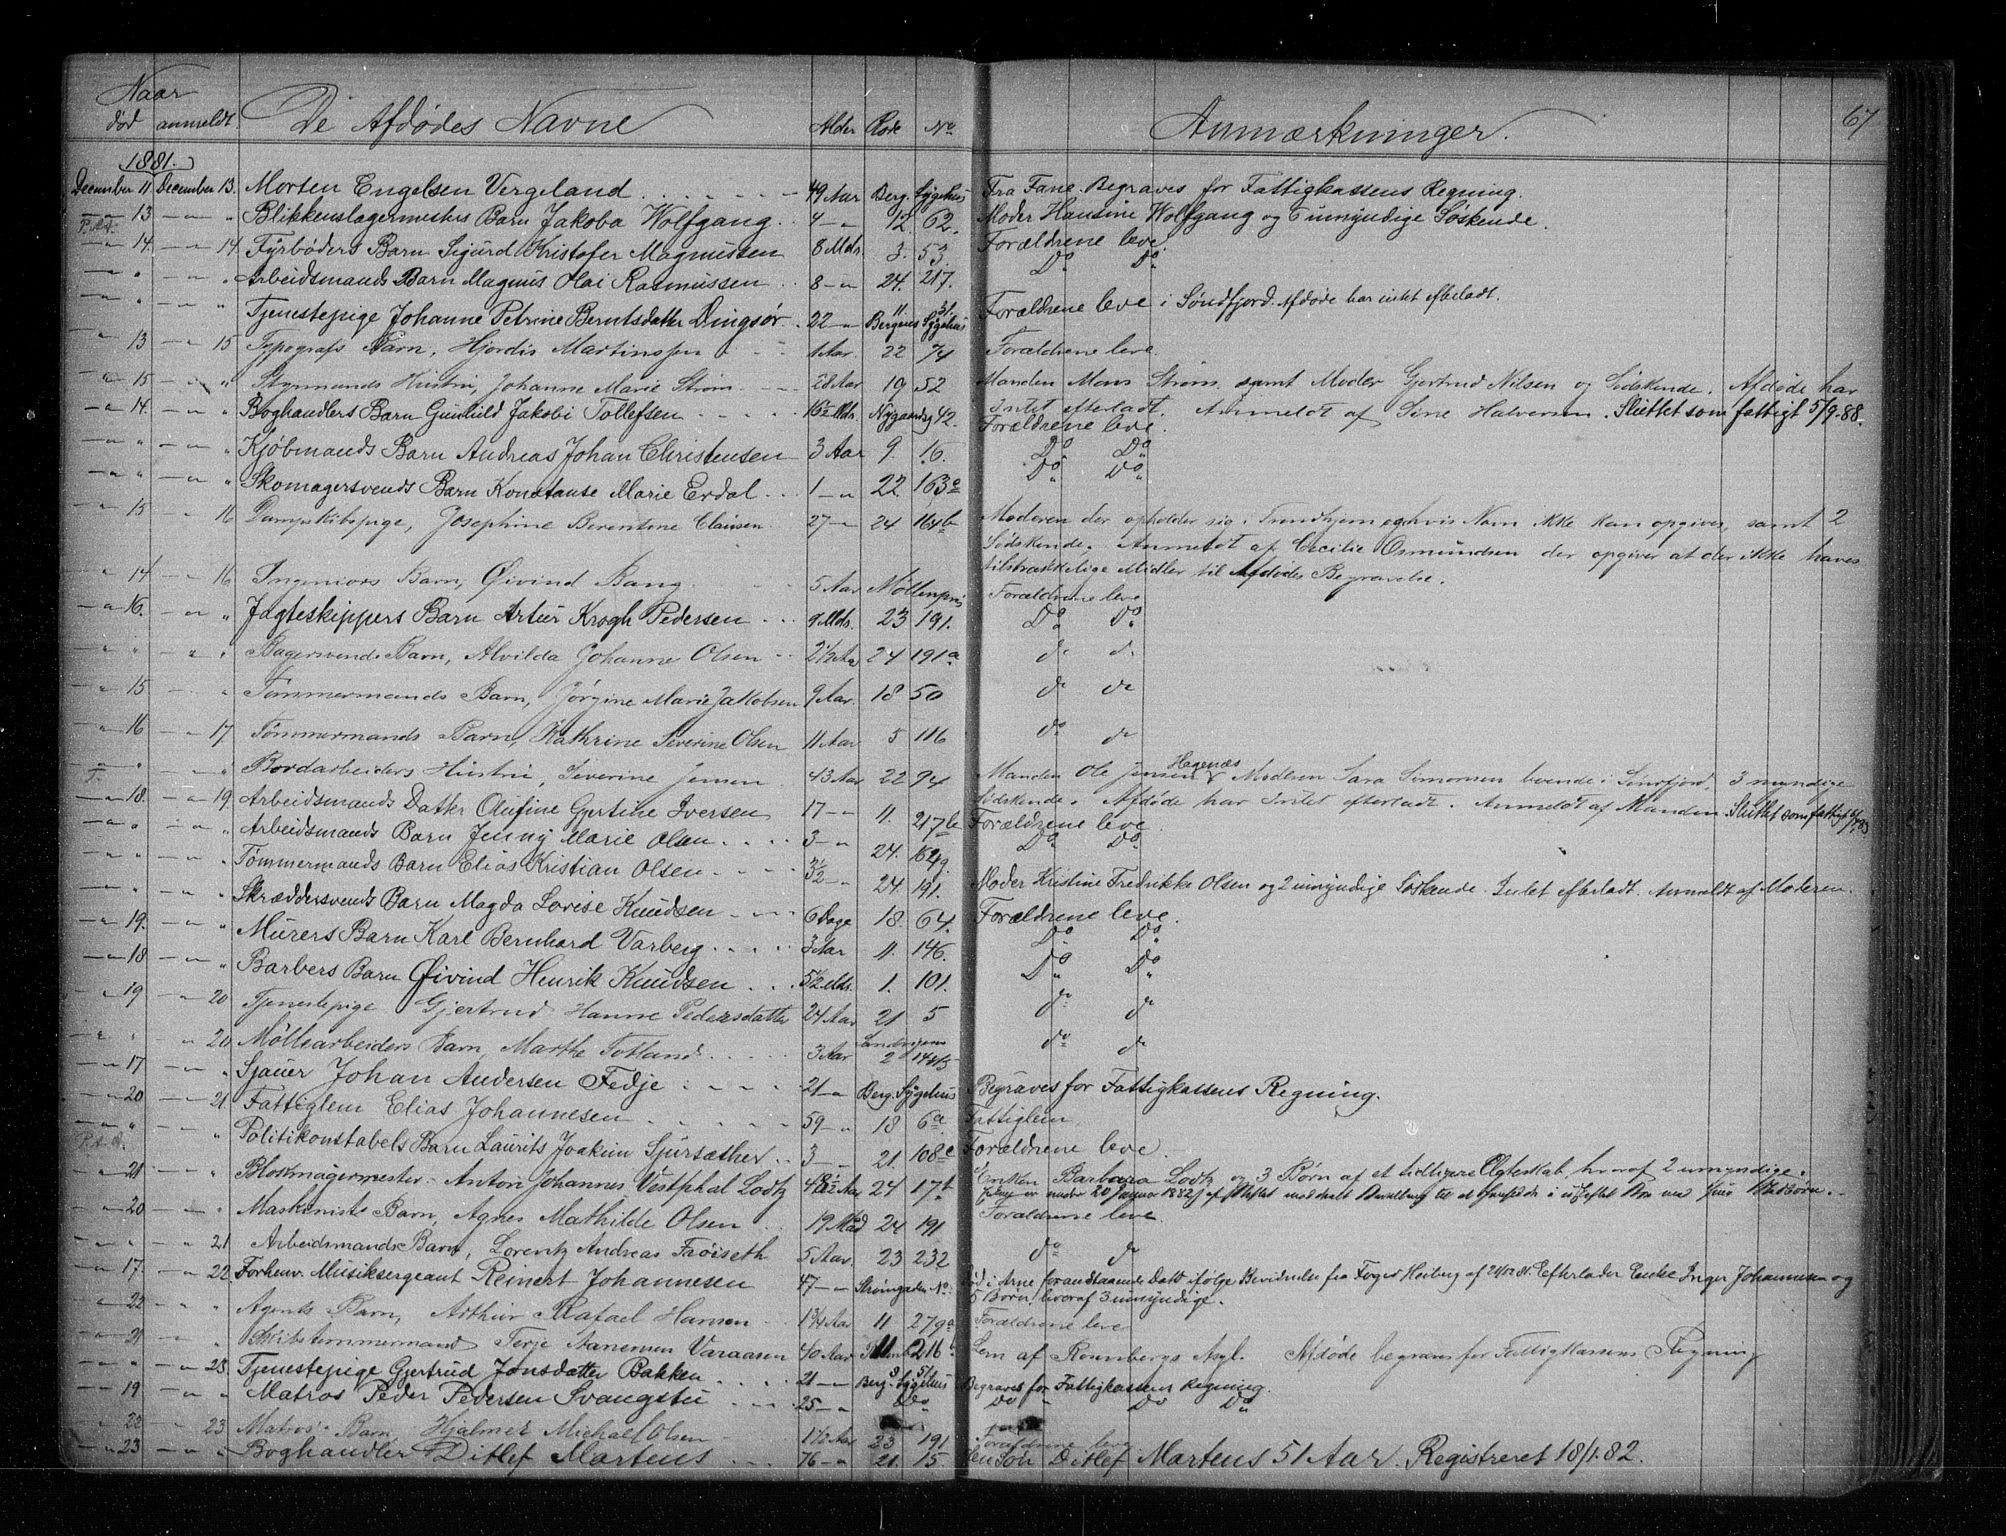 Naar
død anmeldt De Afdødes Navne Alder Rode No Anmærkninger. 67
1881.
December 11 December 13. Morten Engelsen Vergeland 49 Aar Berg. Sygehus Fra Fane. Begraves for Fattigkassens Regning.
13 " Blikkenslagermesters Barn Jakoba Wolfgang. 4 12. 62. Moder Hansine Wolfgang og 6 umyndige Søskende.
14. 14 Fyrbøders Barn Sigurd Kristofer Magnussen 8 Mdr. 3. 53. Forældrene leve.
" " Arbeidsmands Barn Magnus Olai Rasmussen 8 24. 217. Do Do
" " Tjenestepige Johanne Petrine Berntsdatter Dingsør 22 Bergens Sygehus Forældrene leve i Søndfjord. Afdøde har intet efterladt.
13 15 Typografs Barn, Hjordis Martinsen 1 Aar. 22 74 Forældrene leve
15 " Styrmands Hustru, Johanne Marie Strøm 28 Aar 19 52 Manden Mons Strøm, samt Moder Gjertrud Nilsen og Sødskende. Afdøde har
14. " Boghandlers Barn Gunhild Jakobi Tollefsen Mdr. Nygaardsg 42. Intet efterladt. Anmeldt af Sine Halvorsen. Sluttet som fattigt 5/9.88.
Forældrene leve.
" " Kjøbmands Barn Andreas Johan Christensen 3 Aar 9. 16. Do Do
" " Skomagersvends Barn Konstanse Marie Erdal 1 22 163a Do Do
15 16 Dampskibspige, Josephine Berentine Clausen 27 24 164b Moderen der opholder sig i Trondhjem og hvis Navn ikke kan opgives, samt 2
Sødskende. Anmeldt af Cecilie Osmundsen der opgiver at der ikke haves
tilstrækkelige Midler til Afdødes Begravelse.
14 16 Ingeniørs Barn, Øivind Bang 5 Aar Møllenpris Forældrene leve
16. " Jagteskippers Barn Artur Krogh Pedersen 9 Mdr. 23 191. Do Do
" " Bagersvends Barn, Alvilda Johanne Olsen 2 1/2 Aar 24 191a do do
15 " Tømmermands Barn, Jørgine Marie Jakobsen 9 Aar. 18 50 do do
16 17 Tømmermands Barn, Kathrine Severine Olsen 11 Aar 5 116 do do
" " Bordarbeiders Hustru, Severine Jensen 43 Aar 22 94 Manden Ole Jensen Hagenæs Moderen Sara Simonsen boende i Søndfjord, 3 myndige
18. 19. Arbeidsmands Datter Olufine Gjertine Iversen 17 11. 217b Sødskende. Afdøde har Intet efterladt. Anmeldt af Manden. Sluttet som fattigt
Forældrene leve.
" " Arbeidsmands Barn Jenny Marie Olsen 3 24. Do Do
" " Tømmermands Barn Elias Kristian Olsen 3 1/2 24. 191. Moder Kristine Fredrikke Olsen og 2 umyndige Søskende. Intet efterladt. Anmeldt af Moderen.
" " Skræddersvends Barn Magda Lovise Knudsen 6 Dage 18. 64. Forældrene leve.
19. " Murers Barn Karl Bernhard Varberg 3 Aar 11. 146. Do Do
18 " Barbers Barn Øivind Henrik Knudsen 5 1/2 Mdr. 1. 101. Do Do
19 20 Tjenestepige Gjertrud Hanne Pedersdatter 24 Aar 21 5 do do
" 20 Møllearbeiders Barn, Marthe Totland 3 Aar Sandvigens do do
17 " Sjauer Johan Andersen Fedje 21 Berg. Sygehus Begraves for Fattigkassens Regning.
20 21 Fattiglem Elias Johannesen 59 18 6a Fattiglem
" " Politikonstabels Barn Laurits Joakim Sjursæther 3 21. 108c Forældrene leve.
21 " Blokmagermester Anton Johannes Vestphal Lodtz Aar 24 17b Enken Barbara Lodtz og 3 Børn af et tidligere Ægteskab, hvoraf 2 umyndige.
20 " Maskinists Barn, Agnes Mathilde Olsen 19 Maad 24 191 Forældrene leve.
" 21 Arbeidsmands Barn, Lorentz Andreas Faøiseth 5 Aar. 23 232 do do
17. 22 Forhenv. Musiksergeant Reinert Johannesen 47 Strømgaden No i Arne forandstaaende Dato ifølge Bevidnelse fra Foged Heiberg af 21/12 81. Efterlader Enke Inger Johannesen og
5 Børn, hvoraf 3 umyndige.
22 " Agents Barn, Arthur Rafael Hansen 1 3/4 Aar 11 279a Forældrene leve
21 " Skibstømmermand Terje Aanensen Varaasen 40 Aar 216 Lem af Rønnbergs Asyl. Afdøde begraves for Fattigkassens Regning
" 23. Tjenestepige Gjertrud Jonsdatter Bakken 21 Berg. Sygehus Begraves for Fattigkassens Regning.
19 " Matros Peder Pedersen Svangstu 25 Do Do Do Do
22 23 Matros Barn Hjalmer Michal Olsen 1 1/2 Aar 23 191 Forældrene leve
23 " Boghandler Ditlef Martens 76 21. 15 Søn Ditlef Martens 51 Aar. Registreret 18/1.82.